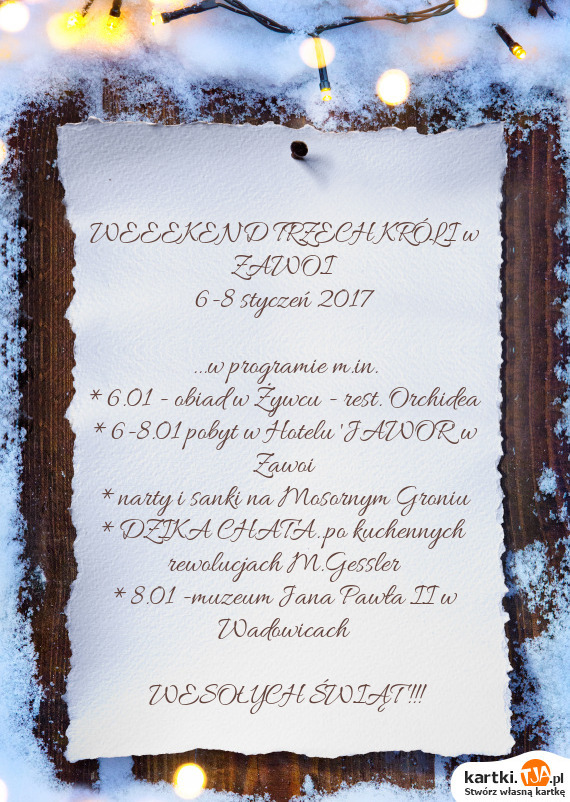 WEEEKEND TRZECH KRÓLI w
ZAWOI
6-8 styczeń 2017
...w programie m.in.
* 6.01 - obiad w Żywcu - rest. Orchidea
* 6-8.01 pobyt w Hotelu 'JAWOR, w
Zawoi
* narty i sanki na Mosornym Groniu
* DZIKA CHATA..po kuchennych
rewolucjach M.Gessler
* 8.01 -muzeum Jana Pawła II w
Wadowicach
WESOŁYCH ŚWIĄT'!!!
kartki.TJA.pl
Stwórz własną kartkę